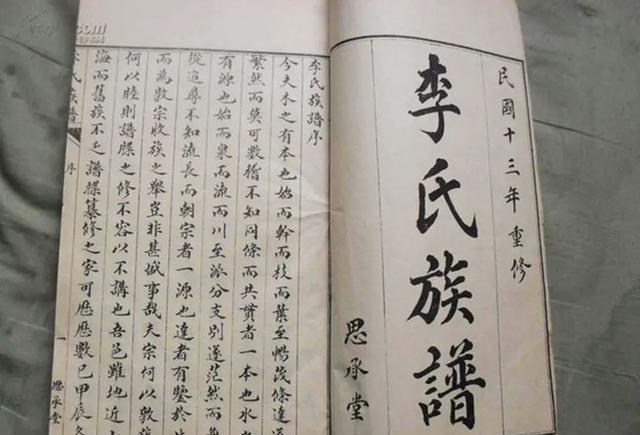 民國十三年重修
李氏族譜
思承堂
李氏族譜序
今夫木之有本也始而幹而枝而葉至暢茂條達
繁然而莫可數稽不知同條而共貫者一本也水
有源也始而泉而流而川至派分支別遂茫然而
從追尋不知流長而朝宗者一源也達者有鑒於
而為敦宗收族之舉豈非甚盛事哉夫宗何以敦族
何以睦則譜牒之修不容以不講也吾邑雖地近
海而舊族不乏譜牒纂修之家可歷歷數已甲辰冬
李氏族譜
序
一
思承堂